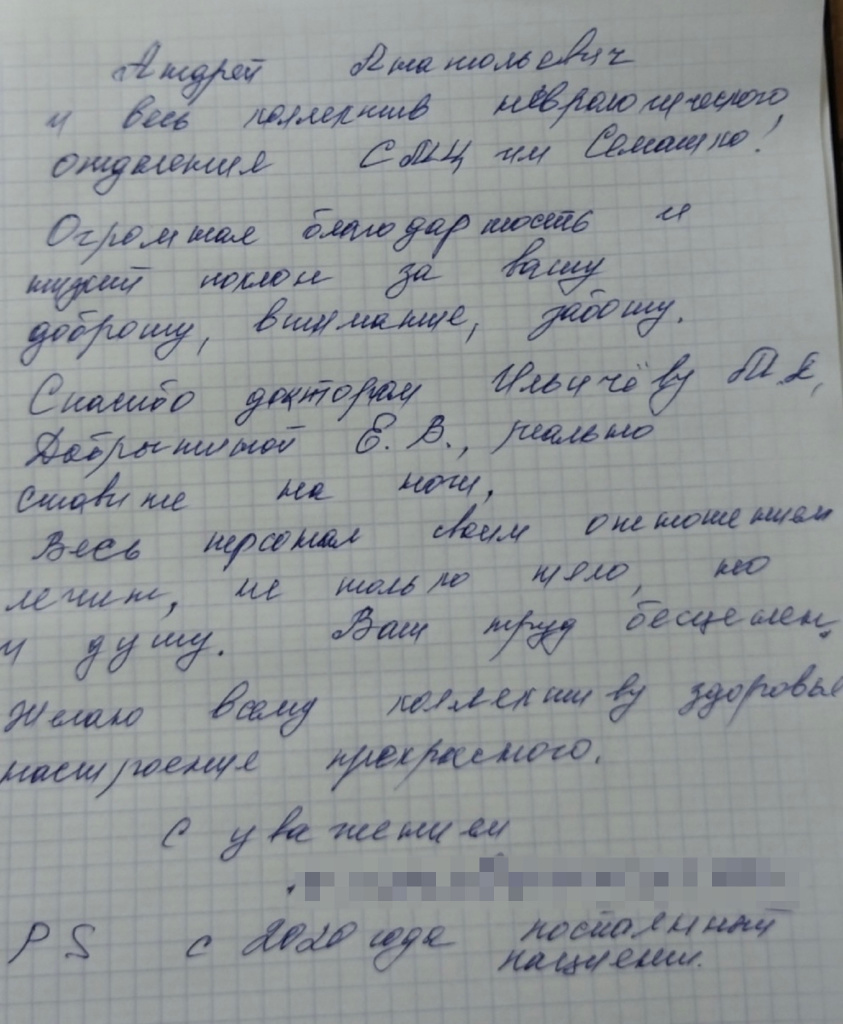 Андрей Анатольевич
и весь коллектив неврологического
отделения СМЦ им Семашко!
Огромная благодарность и
низкий поклон за вашу
доброту, внимание, заботу.
Спасибо докторам Ильичёву
Добрыниной Е. В., реально
ставите на ноги,
Весь персонал своим отношением
лечит, не только тело, но
и душу. Ваш труд бесценен.
Желаю всему коллективу здоровья
настроения прекрасного.
с уважением
PS с 2020 года постоянный
пациент.